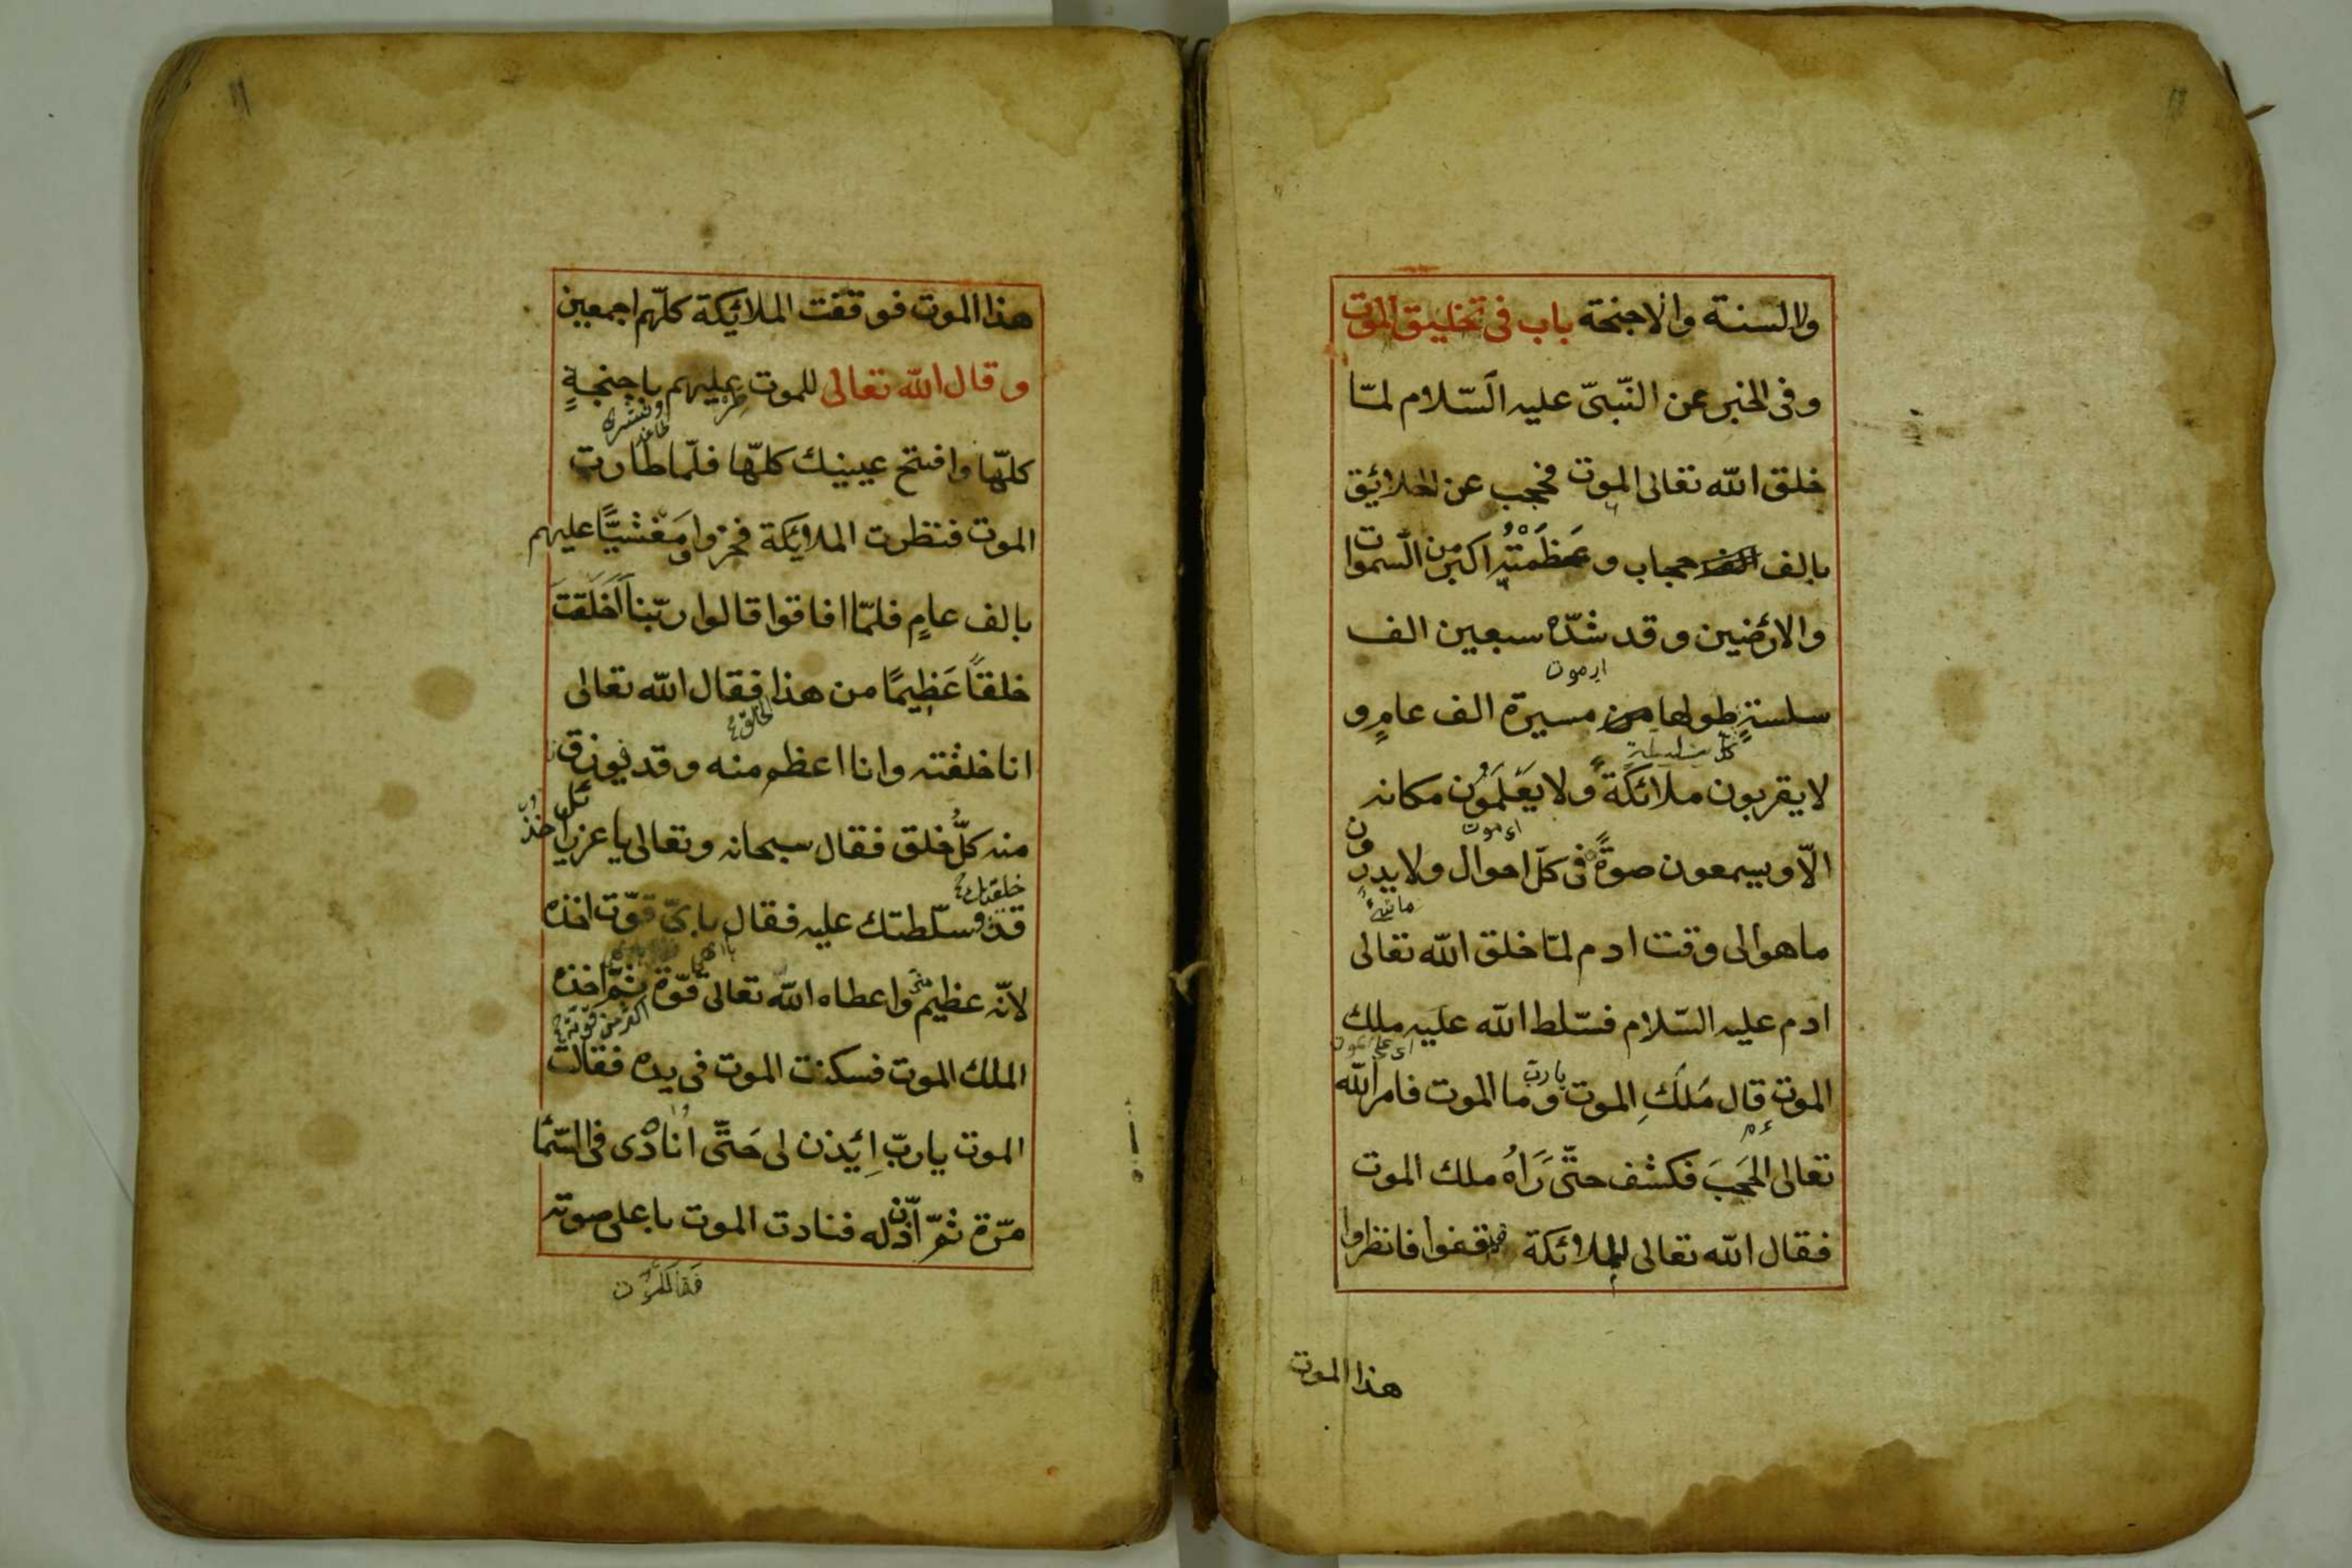 والسنة والاجنحة باب فى تخليق الموت
وفى الخبر عن النّبىّ عليه السّلام لمّا
خلق الله تعالى الموت فحجب عن الخلائق
بالف حجاب وعَظَمَتُه اكبر من السّموات
والارضين وقد شدّه سبعين الف
اى موت
سلسةٍ طولها مسيرة الف عامٍ و
كلّ سلسلة
لايقربون ملائكة ولا يَعْلَمُون مكانه
اى موت
الّا ويسمعون صوةً فى كلّ احوال ولا يدرون
ما شىء
ماهو الى وقت ادم لمّا خلق الله تعالى
ادم عليه السّلام فسّلط الله عليه ملك
اى على الموت
الموت قال مَلَكِ الموت يا ربّ وما الموت فامر الله
تعالى الحُجَبَ فكشف حتّى رَاهُ ملك الموت
فقال الله تعالى للملائكة قفوا فانظروا
هذا الموت
هذا الموت فوقفت الملائيكة كلّهم اجمعين
وقال الله تعالى للموت طر عليهم باجنحةٍ
كلّها وافتح عيينك كلّها فلمّا طارت
الموت فنظرت الملائيكة فخرّوا مَغْشيًّا عليهم
بالف عامٍ فلمّا افاقوا قالوا ربّنا أَخَلَقتَ
خلقًا عَظِيمًا من هذا فقال الله تعالى
انا خلقته وانا اعظم منه وقد يذوق
منه كلُّ خلق فقال سبحانه وتعالى يا عزرائل خذ
قد سلّطتك عليه فقال باىّ قوّت اخذه
لانّه عظيم واعطاه الله تعالى قوّة ثمّ اخذه
الملك الموت فسكنت الموت فى يده فقالت
الموت يا ربّ اِئيذن لى حَتّى انادى فى السّما
مرّة ثمّ اذّن له فنادت الموت باعلى صوته